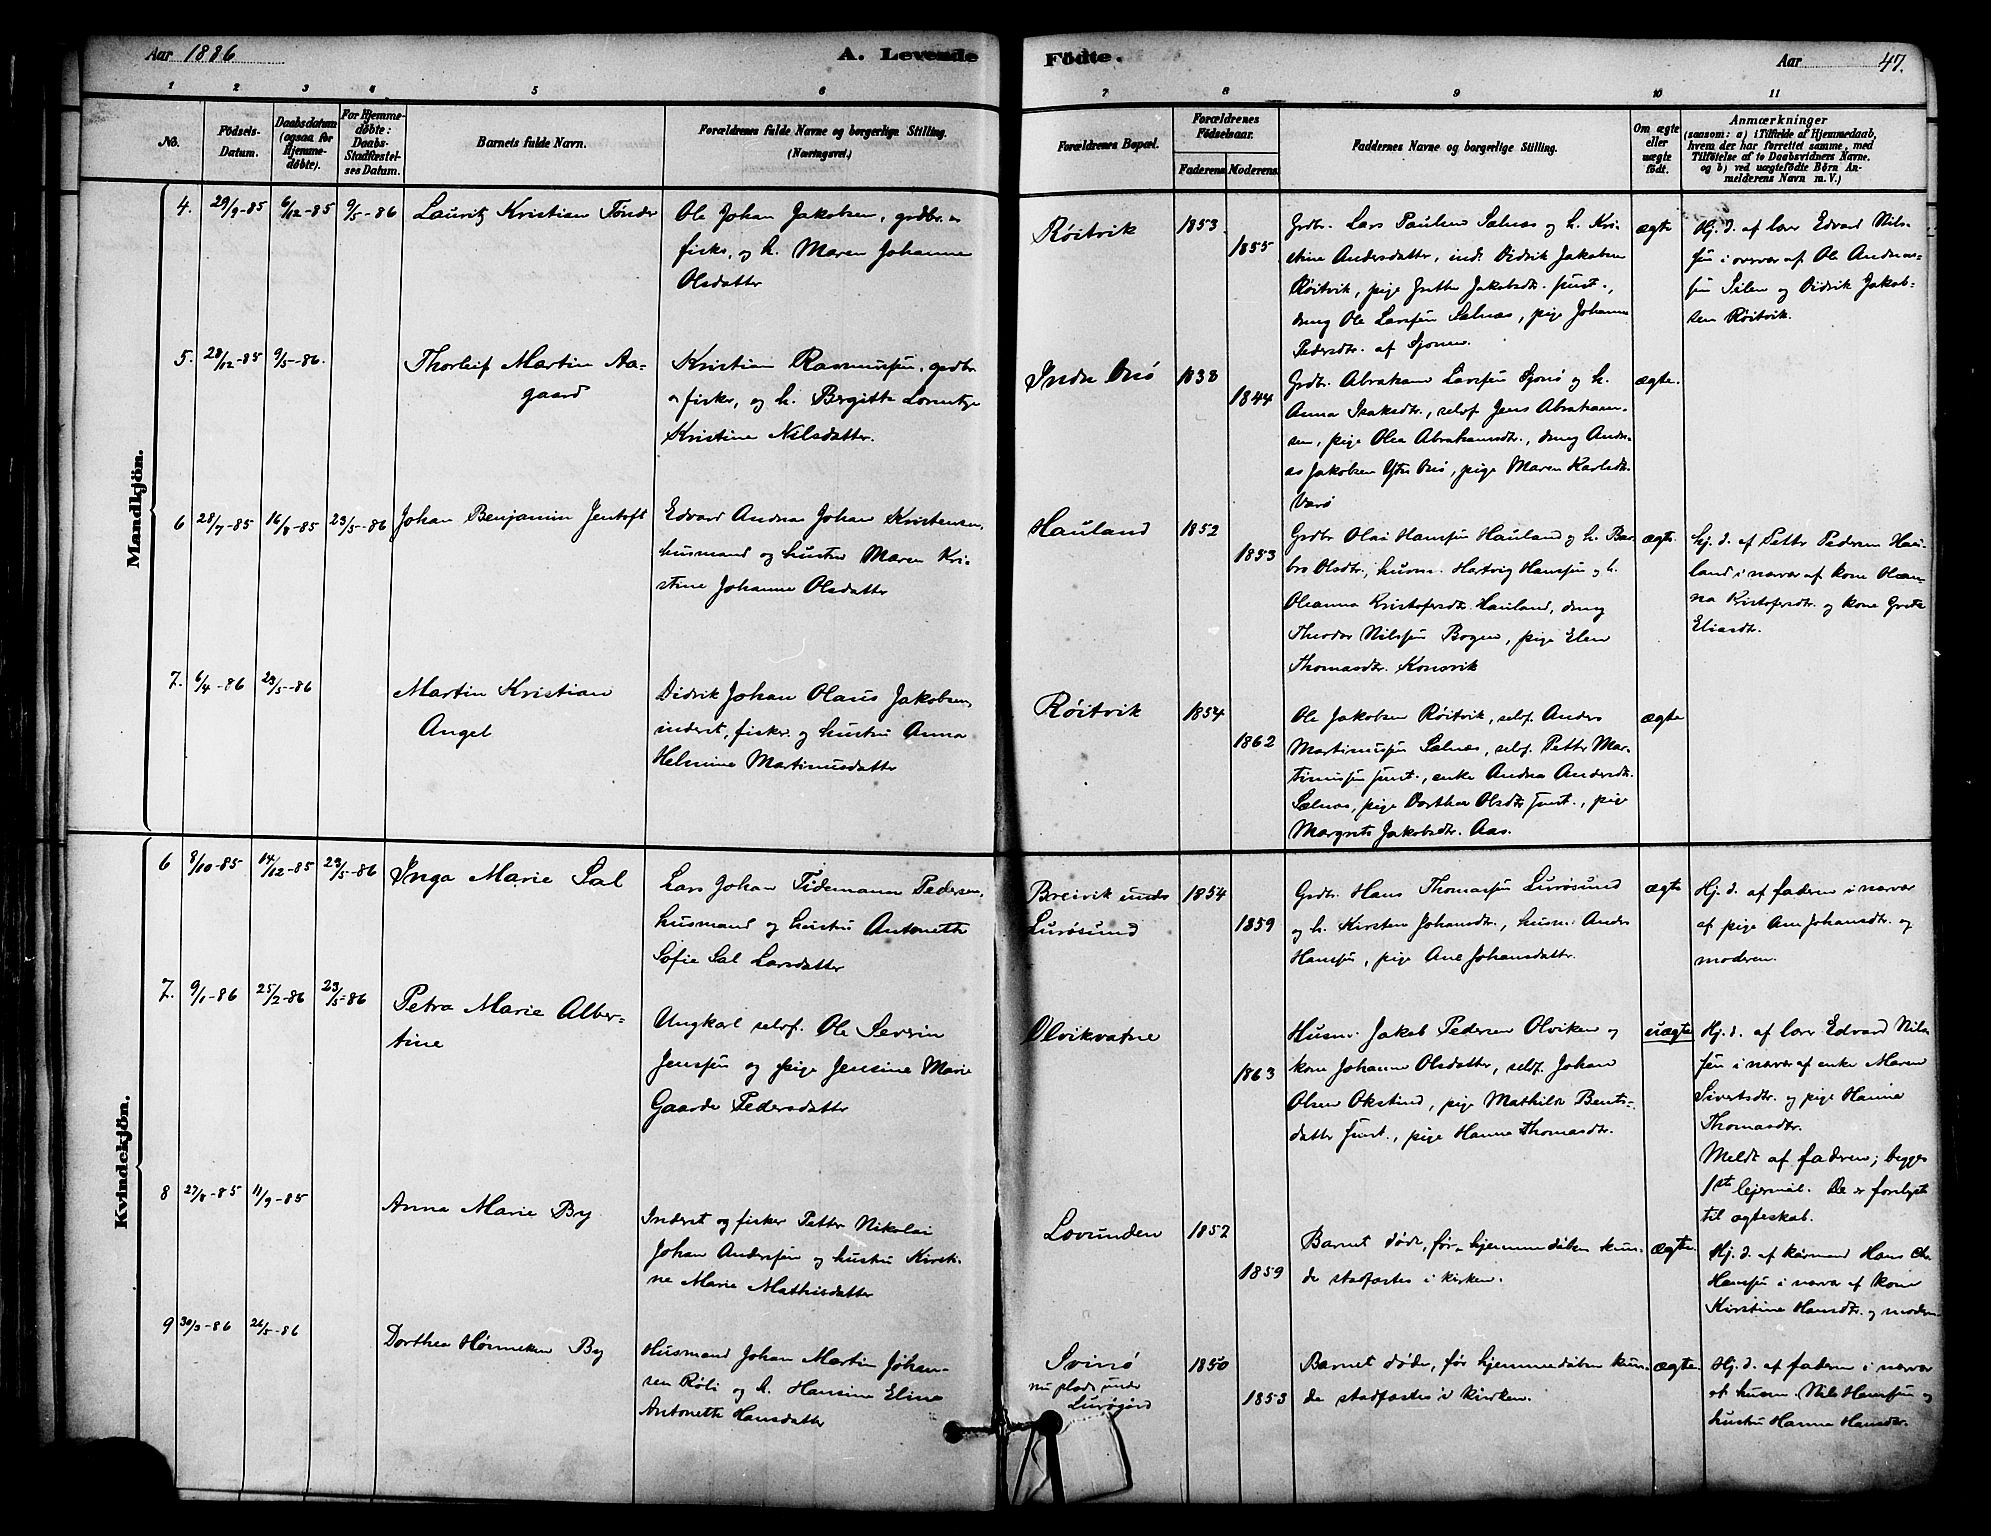 Aar 1886
A. Levende
Födte.
Aar 47.
1 2 3 4 5 6 7 8 9 10 11
No.
Födsels-
Datum.
Daabsdatum
(ogsaa for
Hjemme-
døbte).
For Hjemme-
døbte:
Daabs-
Stadfæstel-
ses Datum.
Barnets fulde Navn.
Forældrenes fulde Navne og borgerlige Stilling.
(Næringsvei.)
Forældrenes Bopæl.
Forældrenes
Födselsaar.
Faderens Moderens
Faddernes Navne og borgerlige Stilling.
Om ægte
eller
uægte
födt.
Anmærkninger
(saasom: a) i Tilfælde af Hjemmedaab,
hvem der har forrettet samme, med
Tilföielse af to Daabsvidners Navne.
og b) ved uægtefödte Börn An-
melderens Navn m. V.)
Mandkjön.
4. 29/9-85 6/12-85 9/5-86
Lauritz Kristian Tönder
Ole Johan Jakobsen, grdbr. &
fisker, og h. Maren Johanne
Olsdatter
Røitvik
1853
1855
Grdbr. Lars Paulsen Sælnæs og h. Kri-
stine Andersdatter, ind. Didrik Jakobsen
Røitvik, pige Grethe Jakobsdtr. smst.,
dreng Ole Larssen Sælnæs, pige Johanne
Pedersdtr. af Sjonen.
ægte
Hj. d. af lærer Edvard Nils-
sen i overvær af Ole Andreas-
sen Silen og Didrik Jakob-
sen Røitvik.
5. 28/12-85 9/5-86.
Thorleif Martin Aa-
gaard
Kristian Rasmussen, grdbr.
& fisker, og h. Bergitte Lorentze
Kristine Nilsdatter.
Indre Onø
1838
1844
Grdbr. Abraham Larssen Sjonø og h.
Anna Isaksdtr., selvf. Jens Abraham-
sen, pige Olea Abrahamsdtr., dreng Andre-
as Jakobsen Ytre Onø, pige Maren Karlsdtr.
Varø
ægte.
6 28/7-85 16/8-85 23/5-86
Johan Benjamin Jentoft
Edvard Andrea Johan Kristensen,
husmand og hustru Maren Kri-
stine Johanne Olsdatter
Hauland
1852
1853
Grdbr Olai Hanssen Hauland og h. Bar-
bro Olsdtr., husm. Hartvig Hanssen og h.
Oleanna Kristofersdtr. Hauland, dreng
Theodor Nilssen Bogen, pige Elen
Thomasdtr. Konsvik
ægte.
Hj. d. af Petter Pedersen Hau-
land i nærvær af kone Olean-
na Kristofersdtr. og kone Grete
Eliasdtr.
7. 6/4-86 23/5-86
Martin Kristian
Angel
Didrik Johan Olaus Jakobsen,
inderst, fisker og hustru Anna
Helmine Martinusdatter
Røitvik
1854
1862
Ole Jakobsen Røitvik, selvf. Anders
Martinussen Sælnæs, selvf. Petter Mar-
tinussen smst., enke Andrea Andersdtr.
Sælnæs, pige Dorthea Olsdtr smst., pige
Margrete Jakobsdtr. Aas.
ægte
Kvindekjön.
6 8/10-85 14/12-85 23/5-86
Inga Marie Sal
Lars Johan Tidemann Pedersen,
husmand og hustru Antonette
Sofie Sal Larsdatter
Breivik under
Lurøsund
1854
1859
Grdbr. Hans Thomassen Lurøsund
og h. Kirsten Johansdtr., husm. Anders
Hanssen, pige Ane Johansdatter.
ægte
Hj. d. af faderen i nærvær
af pige Ane Johansdtr. og
moderen.
7. 9/1-86 25/2-86 23/5-86
Petra Marie Alber-
tine
Ungkarl selvf. Ole Severin
Jenssen og pige Jensine Marie
Gaarde Pedersdatter
Olvikvatne
1863
Husm. Jakob Pedersen Olviken og
kone Johanne Olsdatter, selvf. Johan
Olsen Okstind, pige Mathilde Bents-
datter smst., pige Hanna Thomasdtr.
uægte
Hj. d. af lærer Edvard Nils-
sen i nærvær af enke Maren
Sivertsdtr. og pige Hanna
Thomasdtr.
Meldt af faderen; begges
1ste lejermål. De er forlyst
til ægteskab.
8 27/8-85 11/9-85
Anna Marie By
Inderst og fisker Petter Nikolai
Johan Anderssen og hustru Kirsti-
ne Marie Mathisdatter
Lovunden
1852
1859
Barnet døde, før hjemmedåben kun-
de stadfæstes i kirken.
ægte.
Hj. d. af kårmand Hans Chr.
Hanssen i nærvær af kone
Kirstine Hansdtr. og moderen
9 30/3-86 26/5-86
Dorthea Hønneken By
Husmand Johan Martin Johan-
sen Røli og h. Hansine Eline
Antonette Hansdatter
Svinø
nu plads under
Lurøgård
1850
1853
Barnet døde, før hjemmedåben kun-
de stadfæstes i kirken.
ægte.
Hj. d. af faderen i nærvær
af husm. Nils Hanssen og
hustru Hanna Hansdtr.